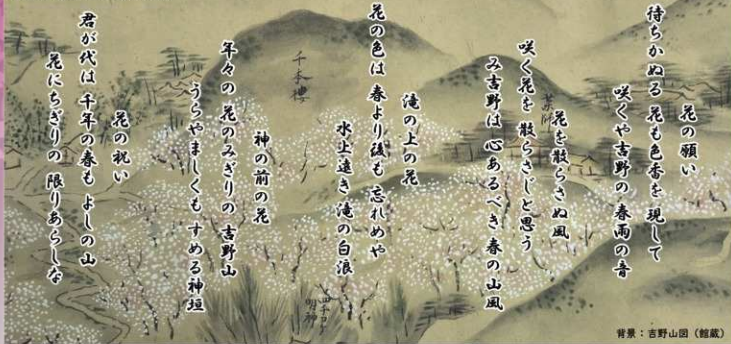 花の願い
待ちかぬる 花も色香を 現して
咲くや吉野の 春雨の音
花を散らさぬ風
咲く花を 散らさじと思う
み吉野は 心あるべき 春の山風
滝の上の花
花の色は 春より後も 忘れめや
水上遠き 滝の白浪
神の前の花
年々の 花のみぎりの 吉野山
うらやましくも すめる神垣
花の祝い
君が代は 千年の春も よしの山
花にちぎりの 限りあらしな
千本桜
背景：吉野山図（館蔵）